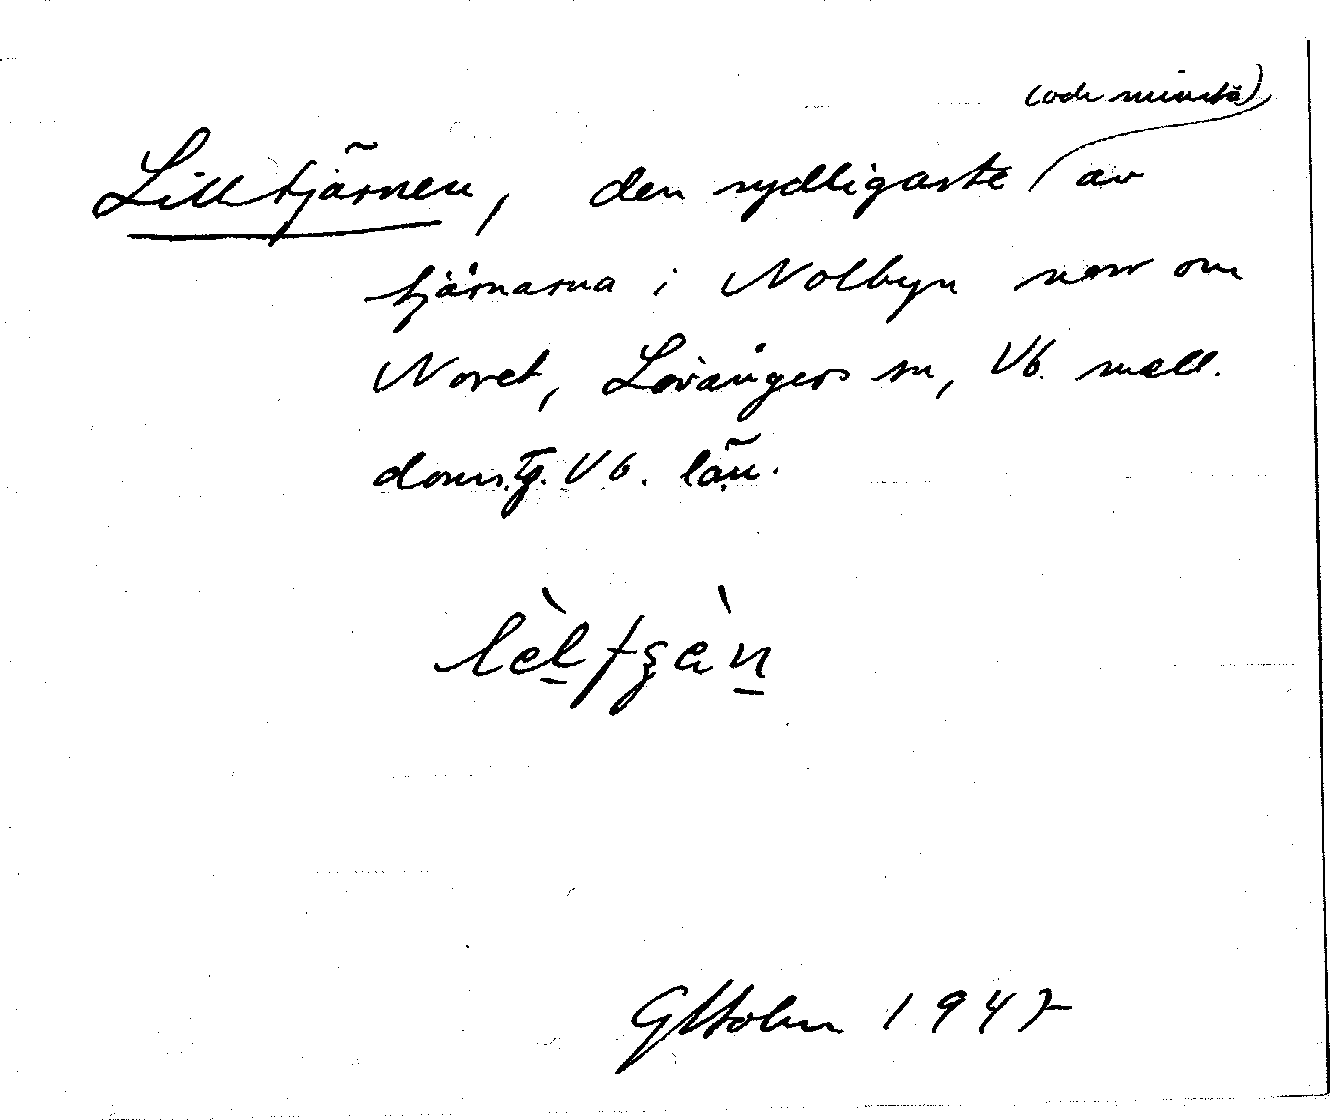 (och minsta)
Lilltjärnen, den sydligaste av
tjärnarna i Nolbyn norr om
Noret, Lövångers sn, Vb. mell.
doms.g. Vb. län.
GHolm 1947